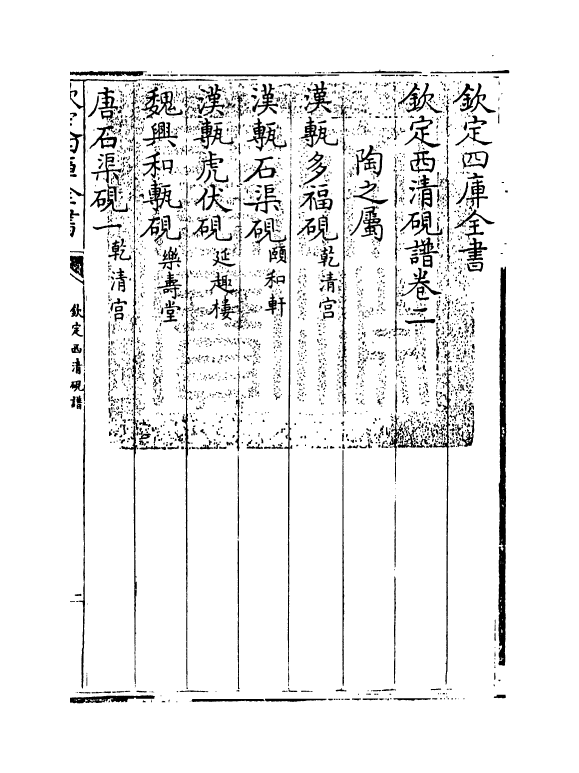 欽定四庫全書
欽定西清硯譜卷二
陶之屬
漢甎多福硯 乾清宫
漢甎石渠硯 頤和軒
漢甎虎伏硯 延趣樓
魏興和甎硯 樂壽堂
唐石渠硯一 乾清宫
欽定四庫全書
欽定西清硯譜
一